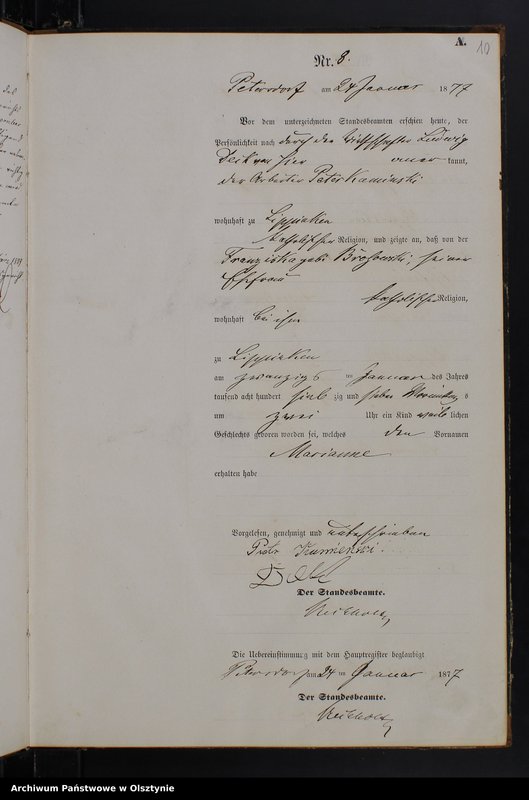 A.
10
Nr. 8.
Petersdorf am 24 Januar 1877
Vor dem unterzeichneten Standesbeamten erschien heute, der
Persönlichkeit nach durch den Wirthschafter Ludwig
von hier aner kannt,
der Arbeiter Peter Kaminski
wohnhaft zu Lippinken
katholischer Religion, und zeigte an, daß von der
Franziska geb. seiner
Ehefrau
katholischer Religion,
wohnhaft bei ihm
zu Lippinken
am zwanzigs ten Januar des Jahres
tausend acht hundert sieb zig und sieben Vormittag s
um zwei Uhr ein Kind weib lichen
Geschlechts geboren worden sei, welches den Vornamen
Marianne
erhalten habe
Vorgelesen, genehmigt und unterschrieben
Piotr Kamienski.
Der Standesbeamte.
Die Uebereinstimmung mit dem Hauptregister beglaubigt
Petersdorf am 24 ten Januar 1877
Der Standesbeamte.
Archiwum Państwowe w Olsztynie